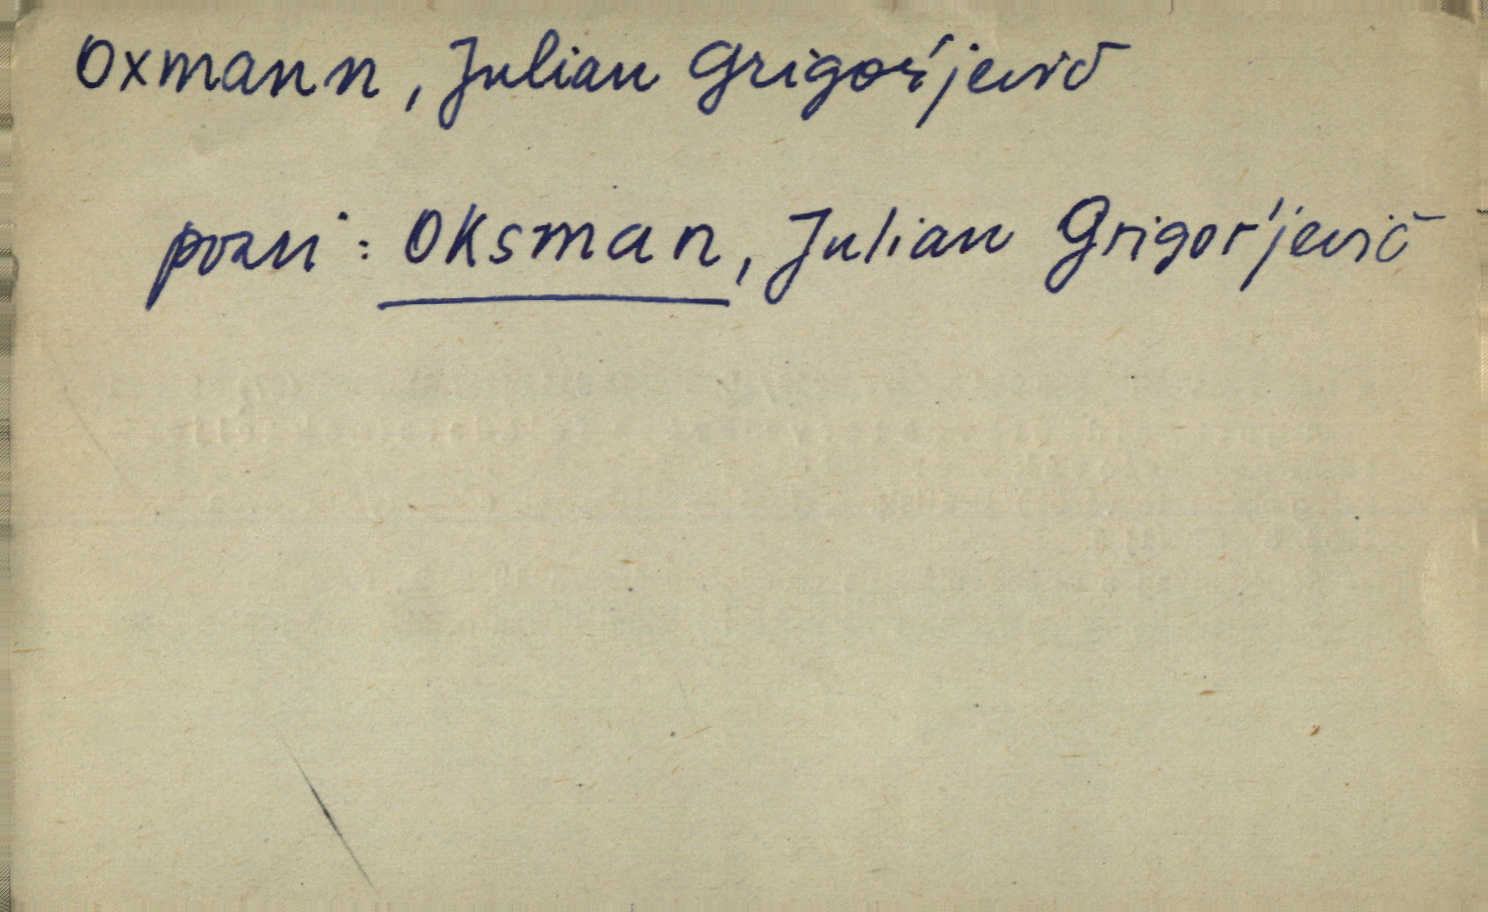 Oxmann, Julian Grigor'jevič
pozri: Oksman, Julian Grigor'jevič